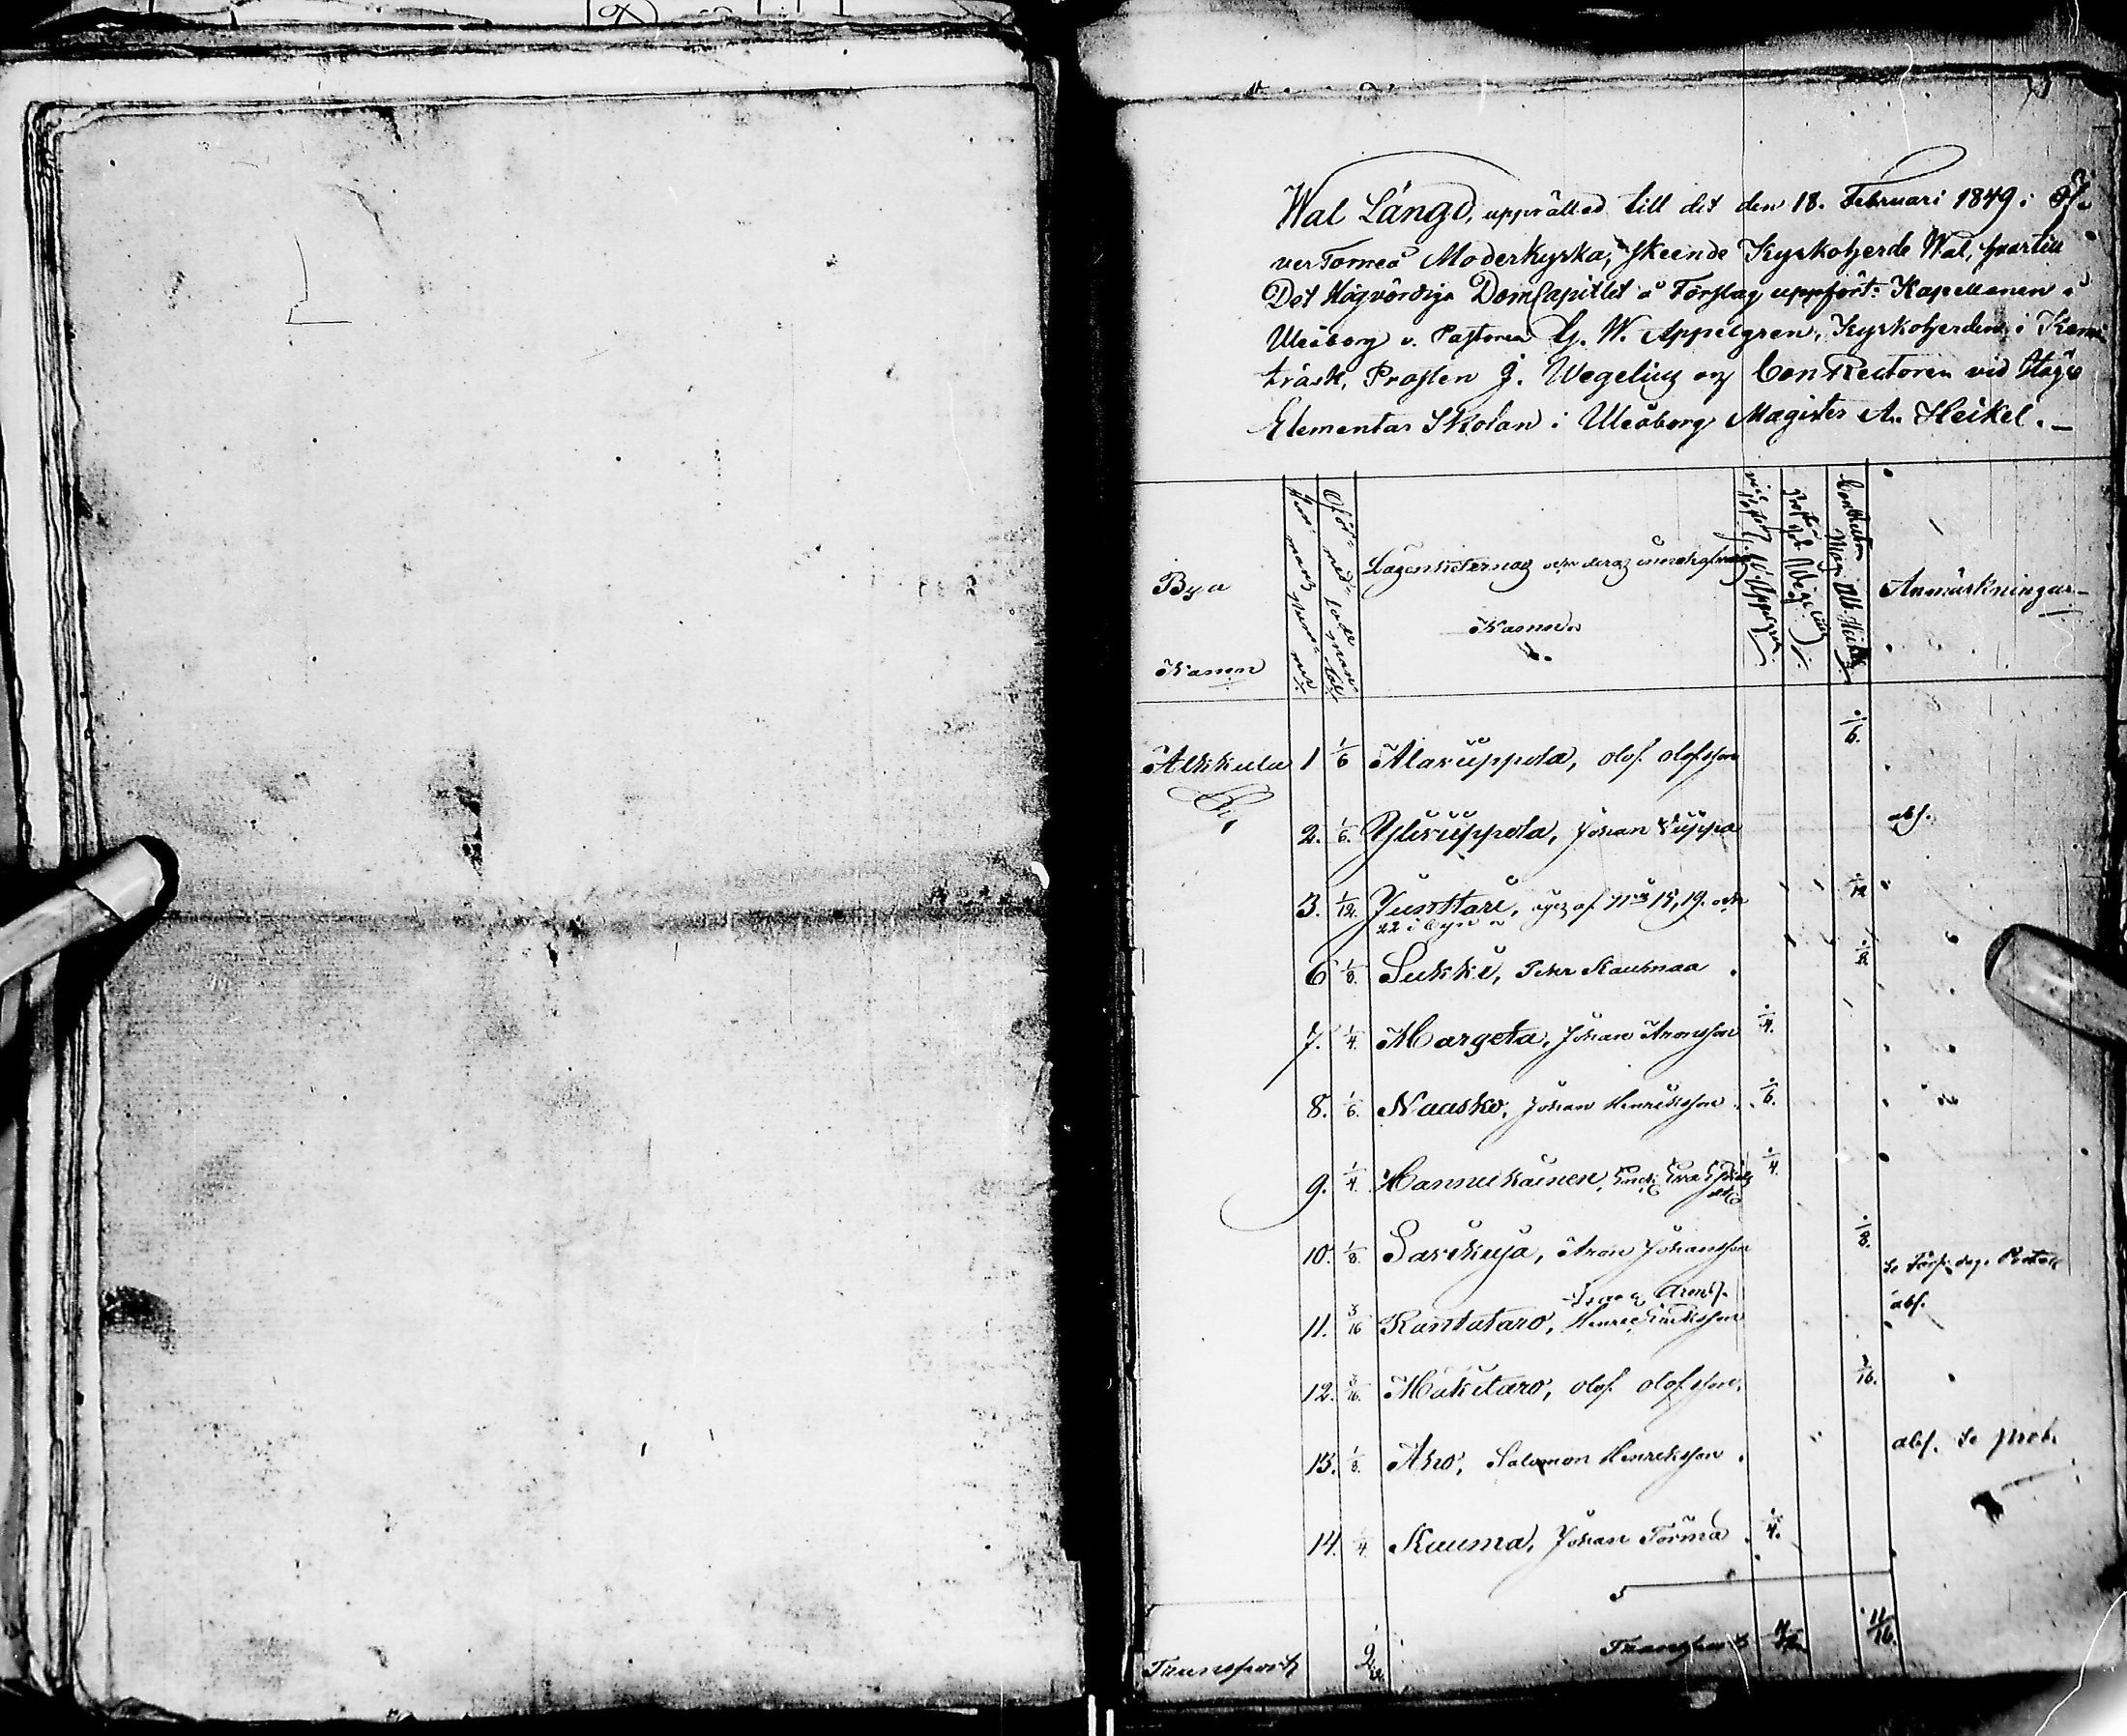 Wal Längd, upprättad till det den 18. Februari 1849 i Öf-
ver Torneå Moderkyrka, skeende Kyrkoherde Wal, hvartill
Det Högvördiga DomCapitlet å Förslag uppfört: Kapellanen i
Uleåborg v. Pastoren G. W. Appelgren, Kyrkoherden i Kemi
träsk, Prosten J. Wegelius och ConRectoren vid Högre
Elementar Skolan i Uleåborg Magister A. Heikel. –
Bya Namn
Hemmans Nummer
Oförmedlade mantal
Lägenheternas och deras innehafvares Namn
G. W. Appelgren
Prosten J. Wegelius
ConRectorn Mag. Alb. Heikel
Anmärkningar
Alkkula By, 1 1/6 Alaruppola, Olof Olofsson 1/6.
2. 1/6. Yliruppola, Johan Ruppa abs.
3. 1/12. Junttari, äges af N:ris 15, 19. och 1/12
22 i byn
6 1/8. Sukki, Petter Kauhnaa 1/8
7. 1/4. Margeta, Johan Aronsson 1/4.
8. 1/6. Naasko, Johan Henriksson 1/6.
9. 1/4. Hannukainen, Eva 1/4.
10. 1/8. Sarikuja, Aron Johansson 1/8.
Se Protoc
Isaac Arons.
11. 3/16 Kantataro, Henric Eriksson abs.
12. 3/16. Mäkitaro, Olof Olofsson, 3/16.
13. 1/8. Aho, Salomon Henriksson. abs. Se prot.
14. 1/4. Kauma, Johan Törmä. 1/4.
Transport 2 Transport 11/12 11/16.